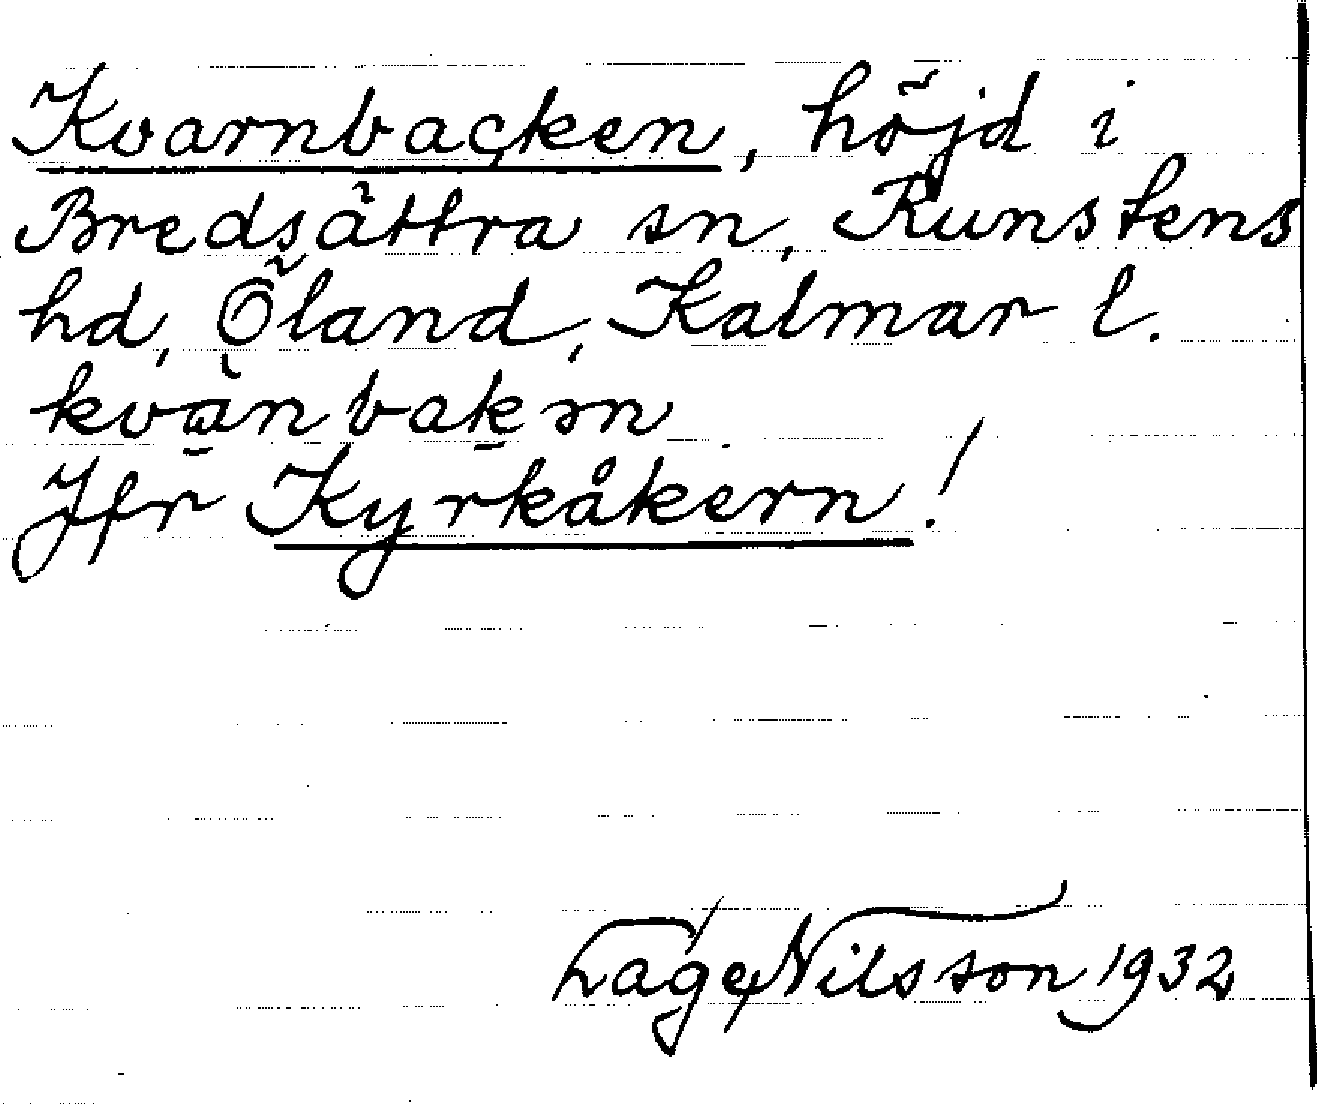 Kvarnbacken, höjd i
Bredsättra sn, Runstens
hd, Öland, Kalmar l.
kvànbakən
Jfr Kyrkåkern!
Låge Nilsson 1932